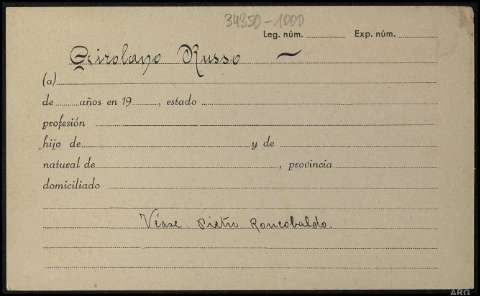 34350-1000
Leg. núm. Exp. núm.
Girolayo Russo
(a)
de años en 19 , estado
profesión
hijo de y de
natural de , provincia
domiciliado
Véase Pietro Roncobaldo.
ARG